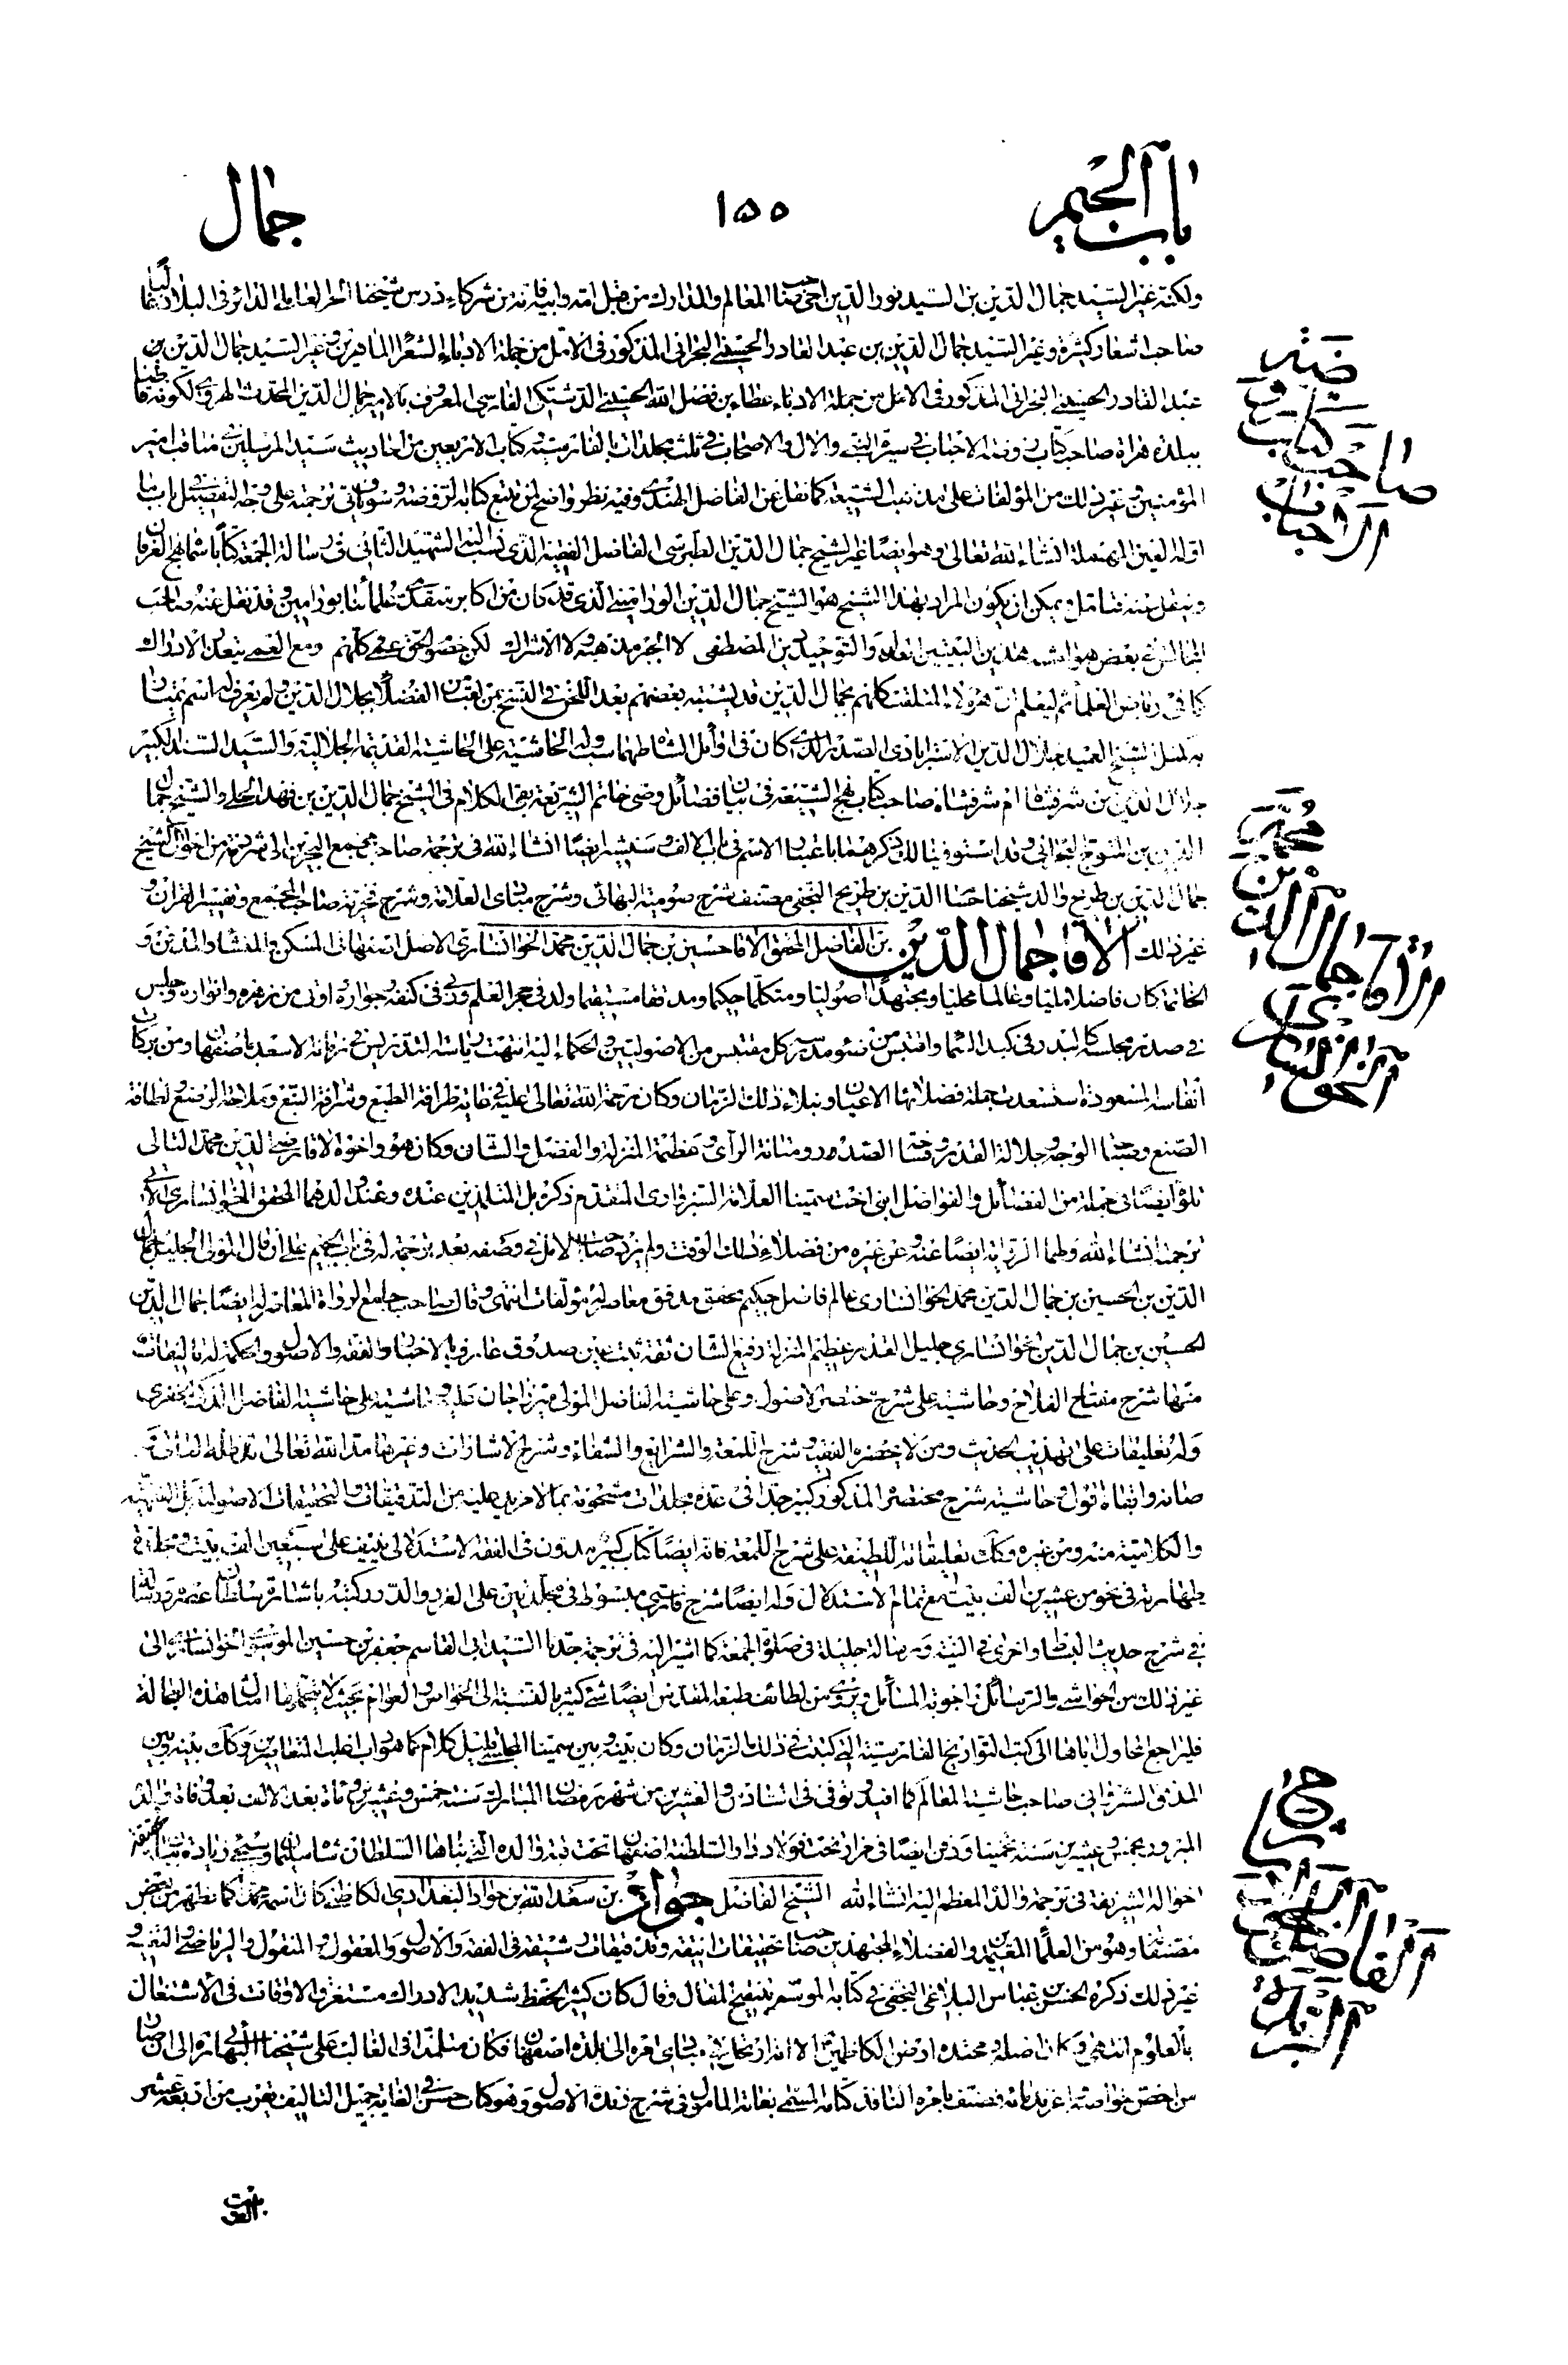 باب الجيم
١٥٥
جمال
ولكنه غير السيد جمال الدين بن السيد نور الدين اخى صاحب المعالم والمدارك من قبل امه وابيه فانه من شركاء درس شيخنا الحر العاملى الدائر فى البلاد
صاحب اشعار كثيرة وغير السيد جمال الدين بن عبد القادر الحسينى البحرانى المذكور فى الامل من جملة الادباء الشعراء الماهرين وغير السيد جمال الدين بن
عبد القادر الحسينى البحرانى المذكور فى الامل من جملة الادباء عطاء بن فضل الله الحسينى الدشتكى الفارسى المعروف بالامير جمال الدين المحدث الهروى لكونه قاطنا
ببلدة هراة صاحب كتاب روضة الاحباب فى سيرة النبى والال والاصحاب فى ثلث مجلدات بالفارسية وكتاب الاربعين من احاديث سيد المرسلين فى مناقب امير
المؤمنين وغير ذلك من المؤلفات على مذهب الشيعة كما نقل عن الفاضل الهندى وفيه نظر واضح لمن تتبع كتابه الروضة وسوف ياتى ترجمته على وجه التفصيل باب ما
اوله العين المهملة انشاء الله تعالى وهو ايضا غير الشيخ جمال الدين الطبرسى الفاضل الفقيه الذى نسب اليه الشهيد الثانى فى رسالة الجمعة كتابا سماه نهج العرفان
وينقل عنه فتامل ويمكن ان يكون المراد بهذا الشيخ هو الشيخ جمال الدين الورامينى الذى قد كان من اكابر متقدمى علمائنا بورامين وقد نقل عنه صاحب
المجالس فى بعض هوامشه هذين البيتين العدل والتوحيد دين المصطفى لا الجبر مذهبه ولا الاشراك لكن خصوم الحق عمى كلهم ومع العمى يتعذر الادراك
كما فى رياض العلماء ثم ليعلم ان هؤلاء المتلقبة كلهم بجمال الدين قد يشتبه بعضهم بعد اللحن فى النسخ بمن لقب من الفضلاء بجلال الدين ولم يعرف له اسم تميتان
به لمثل الشيخ العميد جلال الدين الاسترابادى الصدر الذى كان فى اوائل الشاه طهماسب وله الحاشية على الحاشية القديمة الجلالية والسيد السند الكبير
جلال الدين بن شرفشاه ام شرفشاه صاحب كتاب نهج الشيعة فى بيان فضائل وصى خاتم الشريعة بقى الكلام فى الشيخ جمال الدين بن فهد الحلى والشيخ جمال
الدين بن المتوج البحرانى وقد استوفينا لك ذكرهما باعتبار الاسم فى باب الالف وسنشير ايضا انشاء الله فى ترجمة صاحب مجمع البحرين الى شرذمة من احوال الشيخ
جمال الدين بن طريح والد شيخنا حسام الدين بن طريح النجفى مصنف شرح صومية البهائى وشرح مبادى العلامة وشرح فخرية صاحب المجمع وتفسير القران و
غير ذلك الاقا جمال الدين بن الفاضل المحقق الاقا حسين بن جمال الدين محمد الخوانسارى الاصل اصفهانى المسكن والمنشأ والمدفن و
الخاتمة كان فاضلا مليا وعالما محليا ومجتهدا اصوليا ومتكلما حكيما ومدققا مستقيما ولد فى حجر العلم وربى فى كنفه وجواره اوتى من زهره وانواره وجلس
فى صدر مجلسه كالبدر فى كبد السماء واقتبس من ضوء مدرسه كل مقتبس من الاصوليين والحكماء اليه انتهت رياسة التدريس فى زمانه الاسعد باصفهان ومن بركات
انفاسه المسعودة استسعدت جملة فضلائها الاعيان ونبلاء ذلك الزمان وكان رحمة الله تعالى عليه فى غاية ظرافة الطبع وشرافة النبع وملاحة الوضع ولطافة
الصنع وصباحة الوجه وجلالة القدر وفسحة الصدر ومتانة الراى وعظيمة المنزلة والفضل والشان وكان هو واخوه الاقا رضى الدين محمد التالى
تلوه ايضا فى جملة من الفضائل والفواضل ابنى اخت سمينا العلامة السبزوارى المتقدم ذكره بل المتلمذين عنده وعند والدهما المحقق الخوانسارى الآتى
ترجمته انشاء الله ولهما الرواية ايضا عنه وعن غيره من فضلاء ذلك الوقت ولم يزد صاحب الامل فى وصفه بعد ترجمة له فى باب الجيم على ان قال المولى الجليل جمال
الدين بن الحسين بن جمال الدين محمد الخوانسارى عالم فاضل حكيم محقق مدقق معاصر له مؤلفات انتهى وقال صاحب جامع الرواة المعاصر له ايضا جمال الدين
الحسين بن جمال الدين الخوانسارى جليل القدر عظيم المنزلة رفيع الشان ثقة ثبت عين صدوق عارف بالاخبار والفقه والاصول والحكمة له تاليفات
منها شرح مفتاح الفلاح وحاشيته على شرح مختصر الاصول وعلى حاشية الفاضل المولى ميرزا جان عليه وحاشيته على حاشية الفاضل المذكور الخفرى
وله تعليقات على تهذيب الحديث ومن لا يحضره الفقيه وشرح اللمعة والشرايع والشفاء وشرح الاشارات وغيرها مد الله تعالى ظله العالى
صانه وابقاه اقول وحاشيته شرح مختصر المذكور كبير جدا فى عدة مجلدات مشحونة بما لا مزيد عليه من التدقيقات والتحقيقات الاصولية بل الفقهية
والكلامية منه ومن غيره وكذلك تعليقاته اللطيفة على شرح اللمعة فانه ايضا كتاب كبير مدون فى الفقه الاستدلالى ينيف على سبعين الف بيت ومجلدة
طهارته فى نحو من عشرين الف بيت مع تمام الاستدلال وله ايضا شرح فارسى مبسوط فى مجلدين على الغرر والدرر كتبه باشارة سلطان عصره ورسالة
فى شرح حديث البساط واخرى فى النية ورسالة جليلة فى صلوة الجمعة كما اشير اليه فى ترجمة جدنا السيد ابى القاسم جعفر بن حسين الموسوى الخوانسارى الى
غير ذلك من الحواشى والرسائل واجوبة المسائل ويروى من لطائف طبعه المقدس ايضا شئ كثير بالنسبة الى الخواص والعوام بحيث لا يتحملها امثال هذه العجالة
فليراجع لمحاول اياها الى كتب التواريخ الفارسية التى كتبت فى ذلك الزمان وكان بينه وبين سمينا المجلسى قليل كلام كما هو داب اغلب المتعاصرين وكذلك بينه وبين
المدقق الشروانى صاحب حاشية المعالم كما افيد وتوفى فى السادس والعشرين من شهر رمضان المبارك سنة خمس وعشرين ومائة بعد الالف بعد وفاة والده
المبرور بخمس وعشرين سنة تخمينا ودفن ايضا فى مزار تخت فولاد دار السلطنة اصفهان تحت قبة والده التى بناها السلطان شاه سليمان وسيجئ زيادة بيان لحقيقة
احواله الشريفة فى ترجمة والده المعظم اليه انشاء الله الشيخ الفاضل جواد بن سعد الله بن جواد البغدادى الكاظمى كان اسمه محمد كما يظهر من بعض
مصنفاته وهو من العلماء المعتمدين والفضلاء المجتهدين صاحب تحقيقات انيقة وتدقيقات رشيقة فى الفقه والاصول والمعقول والمنقول والرياضى والتفسير و
غير ذلك ذكره الحسن بن عباس البلاغى النجفى فى كتابه الموسوم بتنقيح المقال وقال كان كثير الحفظ شديد الادراك مستغرق الاوقات فى الاشتغال
بالعلوم انتهى وكان اصله ومحتده ارض الكاظمين الا انه ارتحل فى مبادى امره الى بلدة اصفهان فكان متلمذا فى الغالب على شيخنا البهائى الى ان صار
من اخص خواصه واعز ندمائه فصنف بامره النافذ كتابه المسمى بغاية المامول فى شرح زبدة الاصول وهو كتاب حسن فى الغاية جميل التاليف يقرب من اربعة عشر
صاحب كتاب روضة الاحباب
محمد بن الاقا جمال الدين الخوانسارى
الفاضل الجواد